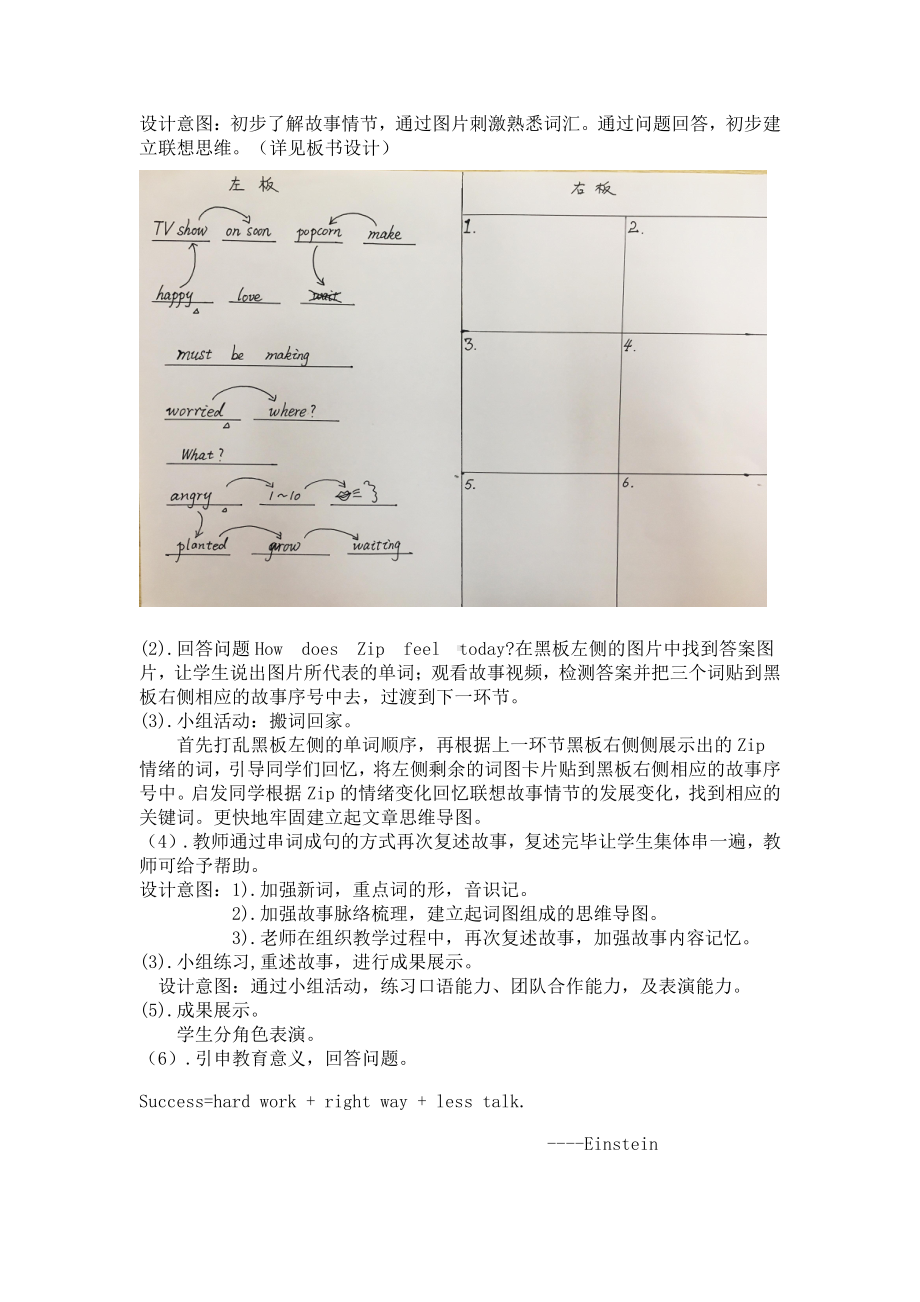 设计意图：初步了解故事情节，通过图片刺激熟悉词汇。通过问题回答，初步建
立联想思维。（详见板书设计）
左 板
右 板
TV show on soon popcorn make
happy love wait
must be making
worried where?
What?
angry 1~10
planted grow waiting
1. 2.
3. 4.
5. 6.
(2).回答问题How does Zip feel today?在黑板左侧的图片中找到答案图
片，让学生说出图片所代表的单词；观看故事视频，检测答案并把三个词贴到黑
板右侧相应的故事序号中去，过渡到下一环节。
(3).小组活动：搬词回家。
首先打乱黑板左侧的单词顺序，再根据上一环节黑板右侧侧展示出的Zip
情绪的词，引导同学们回忆，将左侧剩余的词图卡片贴到黑板右侧相应的故事序
号中。启发同学根据Zip的情绪变化回忆联想故事情节的发展变化，找到相应的
关键词。更快地牢固建立起文章思维导图。
（4）.教师通过串词成句的方式再次复述故事，复述完毕让学生集体串一遍，教
师可给予帮助。
设计意图：1).加强新词，重点词的形，音识记。
2).加强故事脉络梳理，建立起词图组成的思维导图。
3).老师在组织教学过程中，再次复述故事，加强故事内容记忆。
(3).小组练习,重述故事，进行成果展示。
设计意图：通过小组活动，练习口语能力、团队合作能力，及表演能力。
(5).成果展示。
学生分角色表演。
（6）.引申教育意义，回答问题。
Success=hard work + right way + less talk.
----Einstein